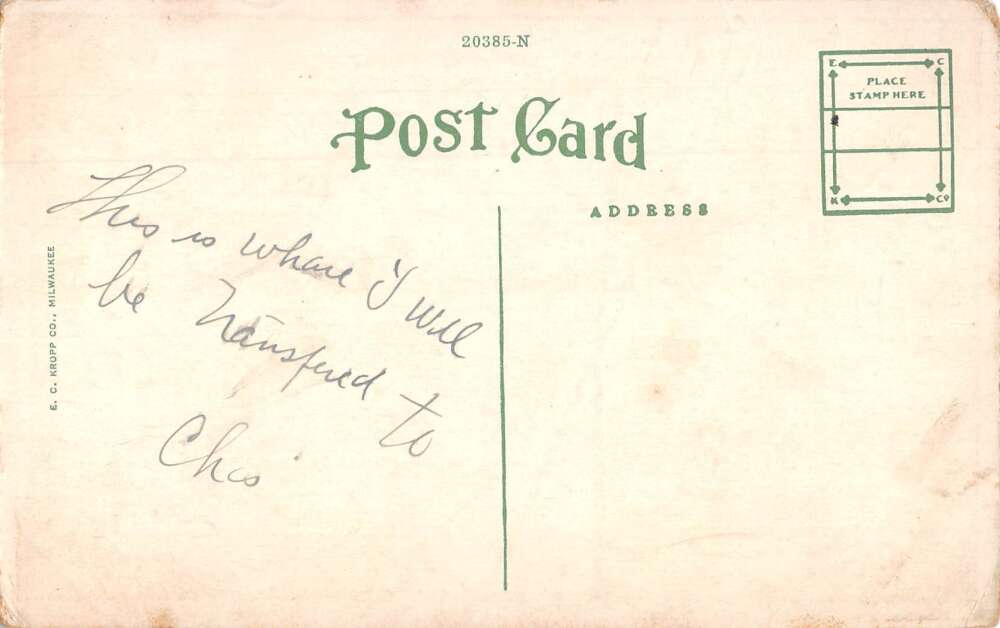 20385-N
POST CARD
E C
PLACE
STAMP HERE
K Co
ADDRESS
E. C. KROPP CO., MILWAUKEE
This is whare I will
be transfered to
Chas